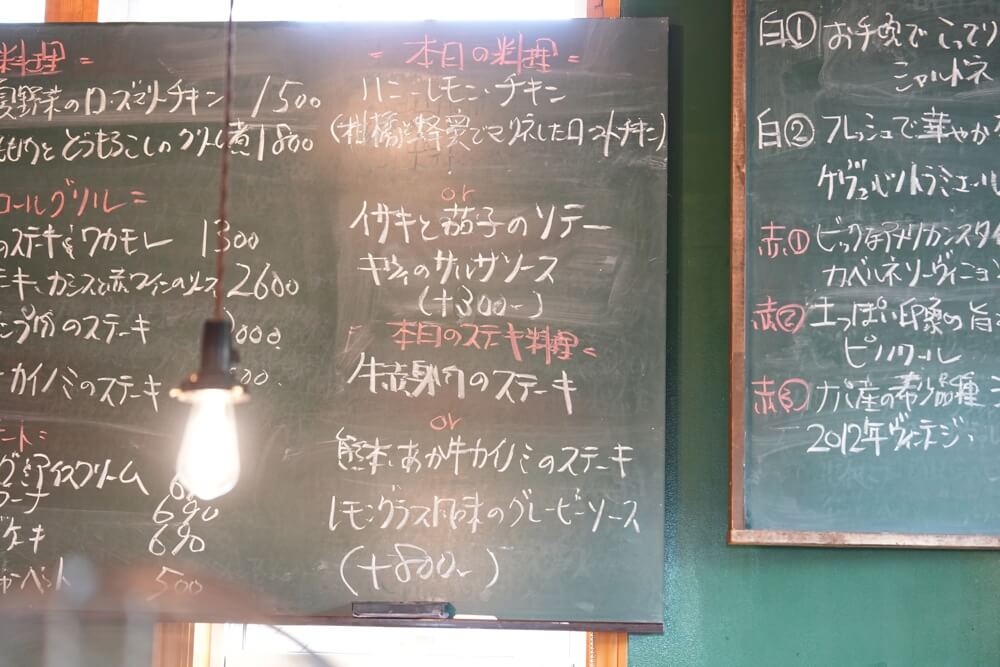 料理
夏野菜のローズマリーチキン 1500
とどうもろこしのクリーム煮 1800
コールグリル
のステキとワカモレ 1300
テーキ、カシスと赤ワインのソース 2600
のステーキ
カイノミのステーキ
アイスクリーム
690
ケーキ 690
シャーベット 500
本日の料理
ハニーレモンチキン
(柑橘と蜂蜜でマリネしたローストチキン)
or
イサキと茄子のソテー
キウイのサルサソース
(+300-)
本日のステキ料理
牛赤身肉のステーキ
or
熊本あか牛カイノミのステーキ
レモングラス風味のグレービーソース
(+800-)
白① お手頃でこってり
シャルドネ
白② フレッシュで華やか
ゲヴュルツトラミネール
赤① ビックなアメリカンスタイ
カベルネソーヴィニヨン
赤② 土っぽい印象の旨
ピノノワール
赤③ ナパ産の希少品種
2012年ヴィンテージ